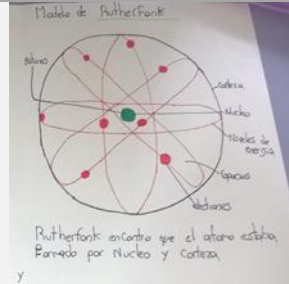 Modelo de Rutherfonk
corteza
Nucleo
Niveles de
energia
electrones
Rutherfonk encontro que el atomo estaba
Formado por Nucleo y Corteza
y